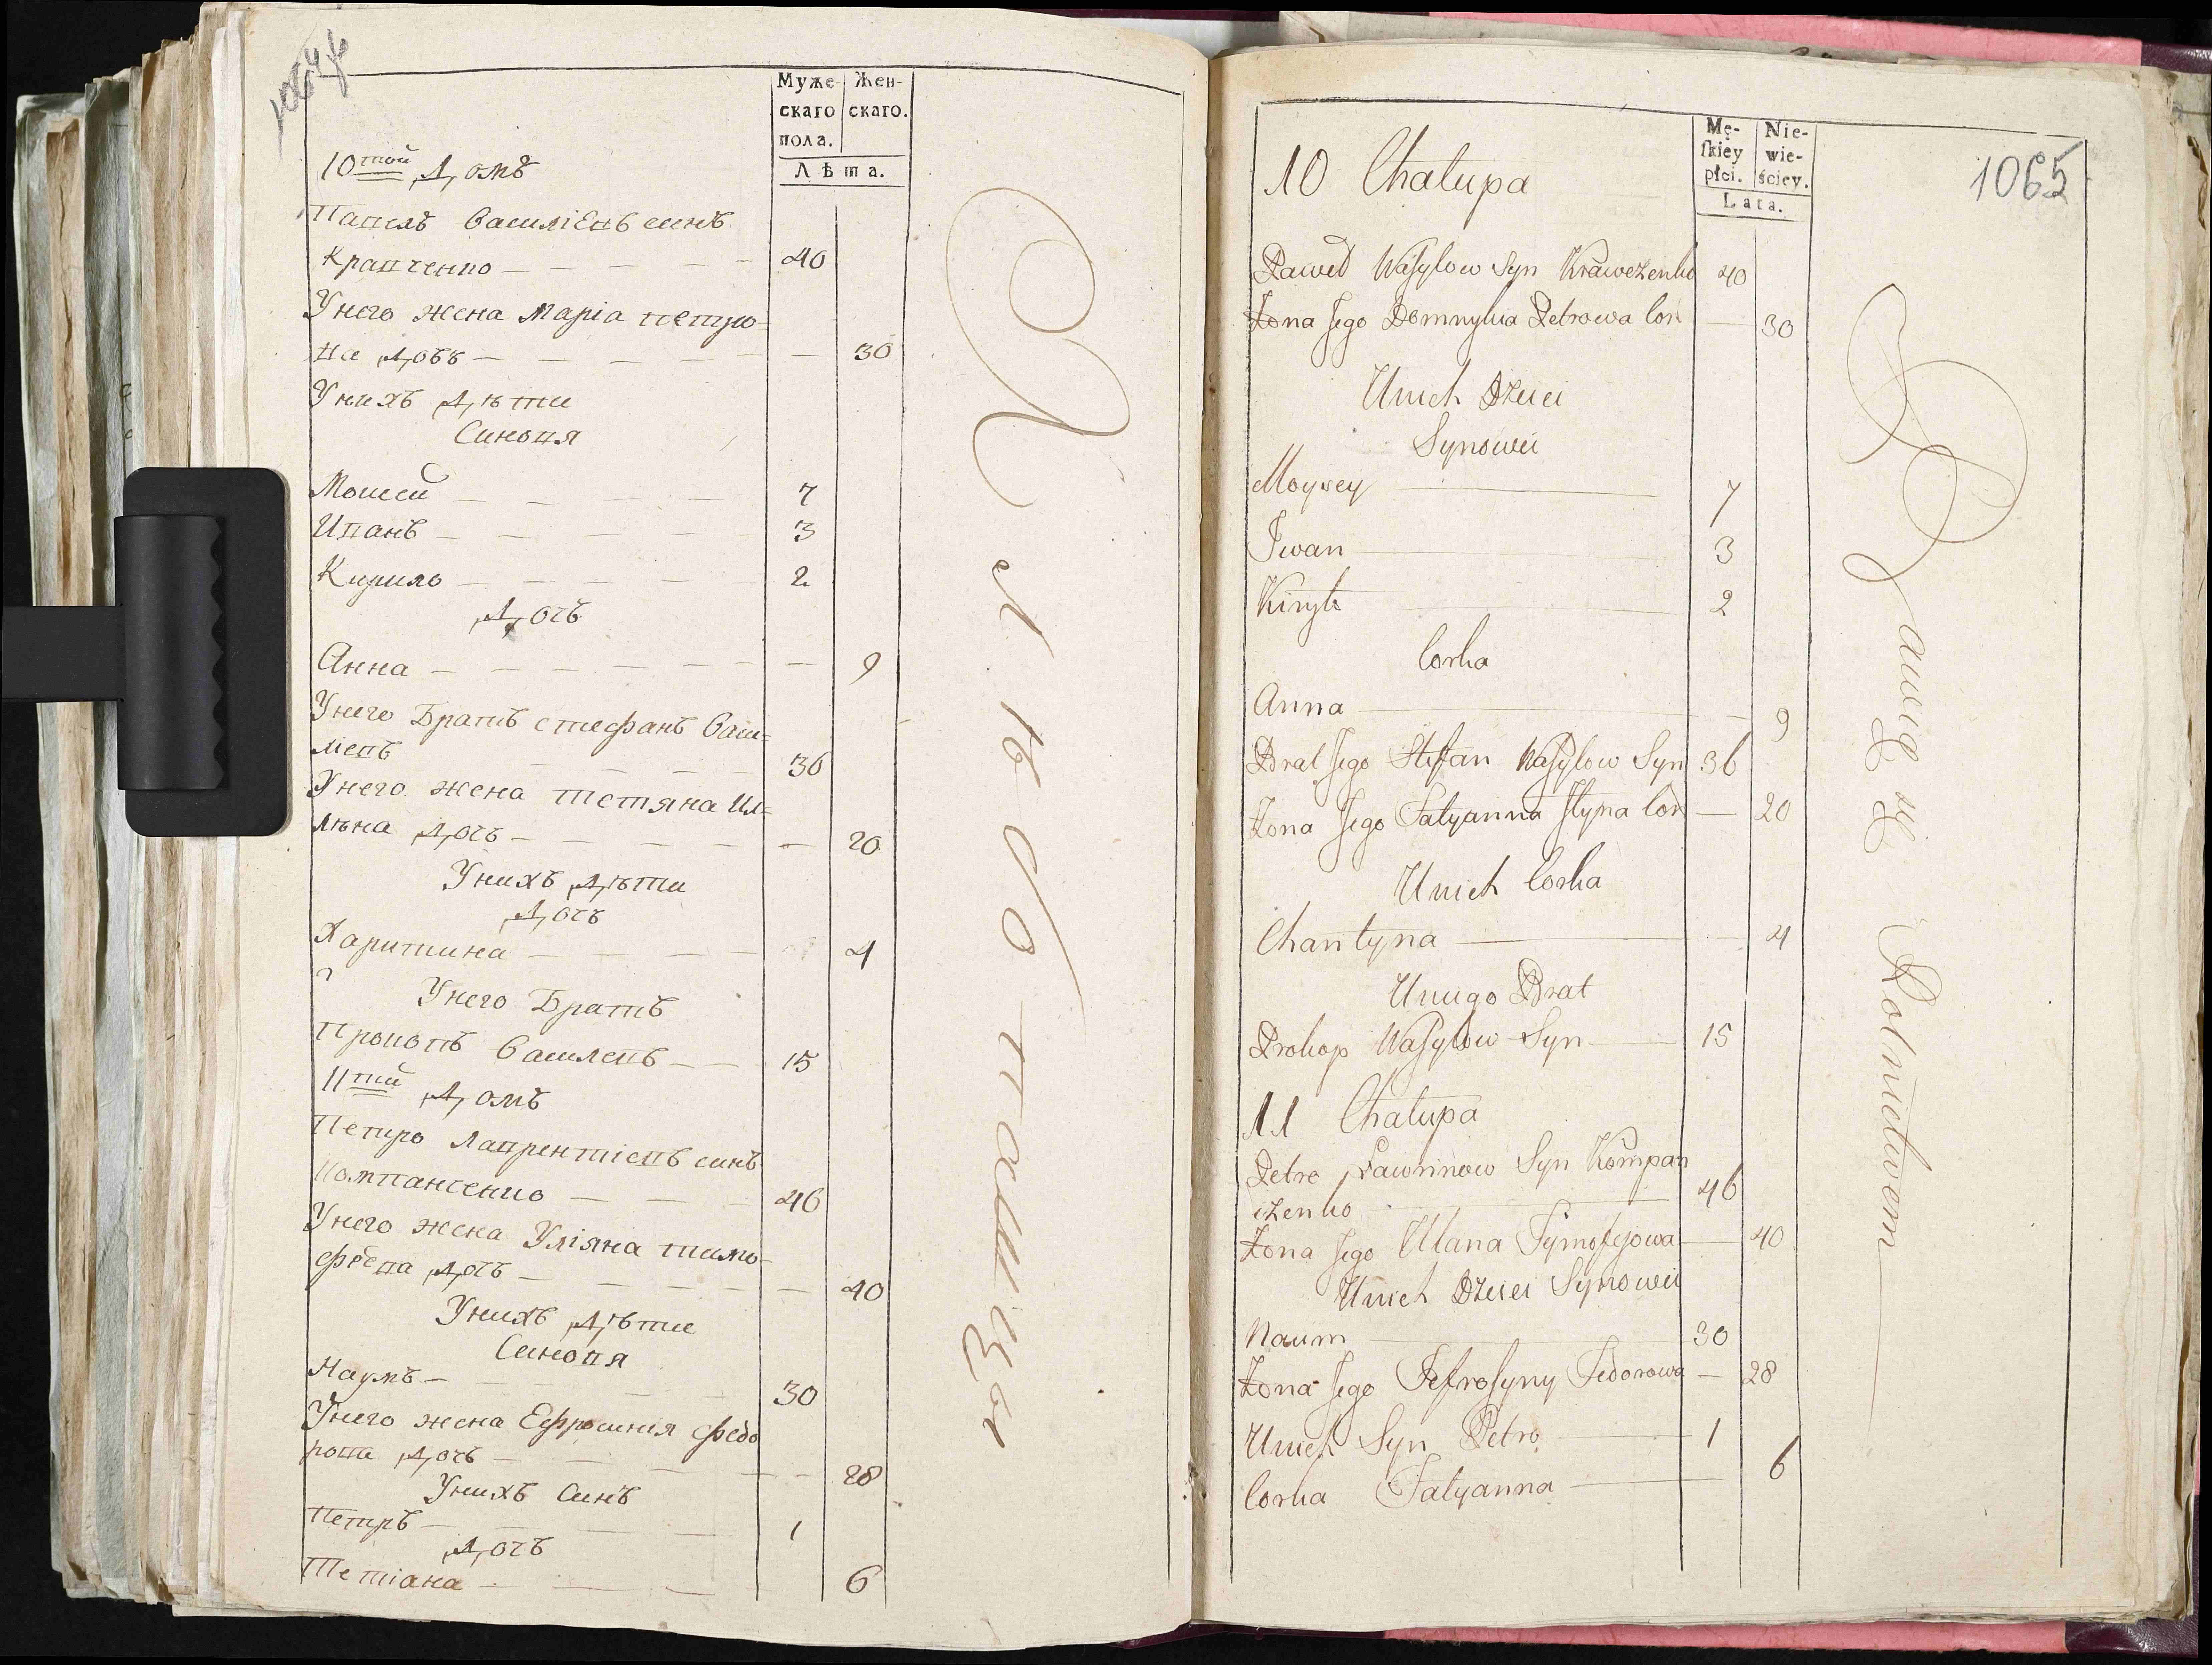 Муже-
скаго
пола.
Жен-
скаго.
Лѣта.
10той Домъ
Павелъ Василіевъ синъ
Кравченко — 40
Унего жена Маріа петро-
ва дочъ — — 30
Унихъ дѣти
Синовя
Моисей — 7
Иванъ — 3
Кирило — 2
Дочъ
Анна — — 9
Унего Братъ стефанъ Васи=
ліевъ — 36
Унего жена тетяна Ил=
лѣна дочъ — — 20
Унихъ дѣти
Дочъ
Харитина — 4
Унего Братъ
Прокопъ Василевъ — 15
11тий Домъ
Петро Лаврентіевъ синъ
Компанченко — 46
Унего жена Уліяна тимо-
феева дочъ — — 40
Унихъ дѣти
Синовя
Наумъ — 30
Унего жена Ефросинія Федо
рова дочъ — — 28
Унихъ Синъ
Петръ — 1
Дочъ
Тетіана — 6
1065
Mę-
skiey
płci.
Nie-
wie-
ściey.
Lata.
10 Chalupa
Paweł Wasylow Syn Krawczenko 40
Żona Jego Domnykia Petrowa Cor — 30
Unich Dzieci
Synowei
Moysey — 7
Iwan — 3
Kiryło — 2
Corka
Anna — — 9
Brat Jego Stefan Wasylow Syn 36
Żona Jego Tatyanna Ilyna Cor — 20
Unich Corka
Charityna — — 4
Uniego Brat
Prokop Wasylow Syn — 15
11 Chalupa
Petro Lawrinow Syn Kompan
iczenko — 46
Żona Jego Ulana Tymofejowa — 40
Unich Dzieci Synowei
Naum — 30
Żona Jego Jefrosyny Fedorowa — 28
Unich Syn Petro — 1
Corka Tatyanna — 6
Rolnictwem